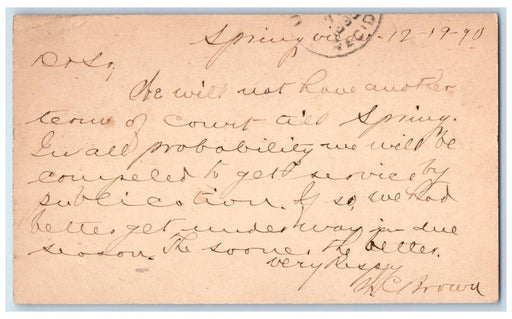 Springville 12-19-90
Dr Sr,
We will not have another
term of court till Spring.
In all probability we will be
compeled to get service by
publication. If so, we had
better get under way in due
season. The sooner the better.
Very Respy
C Brown